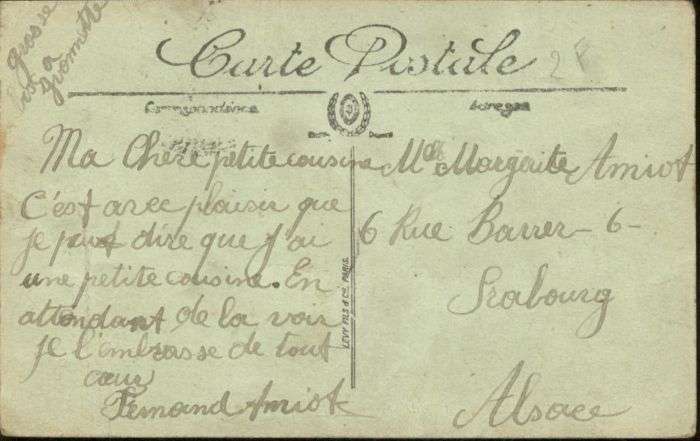 Grosse
bise a
Carte Postale
2F
Correspondance
Adresse
Ma Chère petite cousine
C'est avec plaisir que
je peut dire que j'ai
une petite cousine. En
attendant de la voir
je l'embrasse de tout
cœur
Fernand Amiot
LEVY FILS & Cie, PARIS.
Mlle Margerite Amiot
6 Rue Barrer - 6 -
Srabourg
Alsace